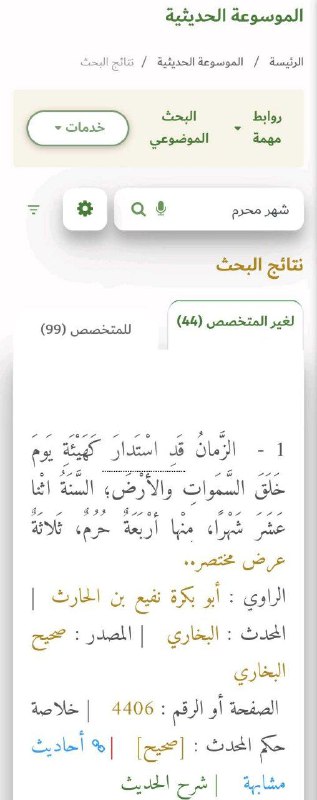 الموسوعة الحديثية
الرئيسة / الموسوعة الحديثية / نتائج البحث
روابط مهمة
البحث الموضوعي
خدمات
شهر محرم
نتائج البحث
لغير المتخصص (44)
للمتخصص (99)
1 - الزَّمانُ قَدِ اسْتَدارَ كَهَيْئَةِ يَومَ
خَلَقَ السَّمَواتِ والأرْضَ؛ السَّنَةُ اثْنا
عَشَرَ شَهْرًا، مِنْها أرْبَعَةٌ حُرُمٌ، ثَلاثَةٌ
عرض مختصر..
الراوي : أبو بكرة نفيع بن الحارث |
المحدث : البخاري | المصدر : صحيح
البخاري
الصفحة أو الرقم : 4406 | خلاصة
حكم المحدث : [صحيح] | أحاديث
مشابهة | شرح الحديث